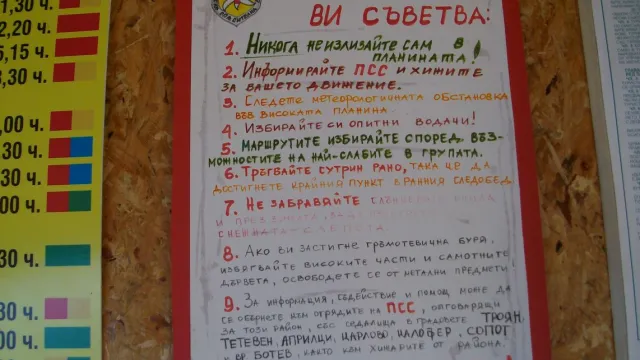 ВИ СЪВЕТВА:
1. НИКОГА НЕ ИЗЛИЗАЙТЕ САМ В
ПЛАНИНАТА!
2. ИНФОРМИРАЙТЕ ПСС И ХИЖИТЕ
ЗА ВАШЕТО ДВИЖЕНИЕ.
3. СЛЕДЕТЕ МЕТЕОРОЛОГИЧНАТА ОБСТАНОВКА
ВЪВ ВИСОКАТА ПЛАНИНА.
4. ИЗБИРАЙТЕ СИ ОПИТНИ ВОДАЧИ!
5. МАРШРУТИТЕ ИЗБИРАЙТЕ СПОРЕД ВЪЗ-
МОЖНОСТИТЕ НА НАЙ-СЛАБИТЕ В ГРУПАТА.
6. ТРЪГВАЙТЕ СУТРИН РАНО, ТАКА ЧЕ ДА
ДОСТИГНЕТЕ КРАЙНИЯ ПУНКТ В РАННИЯ СЛЕДОБЕД
7. НЕ ЗАБРАВЯЙТЕ
И ПРЕЗ
СНЕЖНАТА
8. АКО ВИ ЗАСТИГНЕ ГРЪМОТЕВИЧНА БУРЯ,
ИЗБЯГВАЙТЕ ВИСОКИТЕ ЧАСТИ И САМОТНИТЕ
ДЪРВЕТА, ОСВОБОДЕТЕ СЕ ОТ МЕТАЛНИ ПРЕДМЕТИ!
9. ЗА ИНФОРМАЦИЯ, СЪДЕЙСТВИЕ И ПОМОЩ МОЖЕ ДА
СЕ ОБЪРНЕТЕ КЪМ ОТРЯДИТЕ НА ПСС, ОТГОВАРЯЩИ
ЗА ТОЗИ РАЙОН, СЪС СЕДАЛИЩА В ГРАДОВЕТЕ ТРОЯН,
ТЕТЕВЕН, АПРИЛЦИ, КАРЛОВО, КАЛОФЕР, СОПОТ
И ВР. БОТЕВ, КАКТО КЪМ ХИЖАРИТЕ ОТ РАЙОНА.
1,30 ч.
2,20 ч.
5,15 ч.
3,30 ч.
,00 ч.
30 ч.
30 ч.
00 ч.
30 ч.
30 ч.
00 ч.